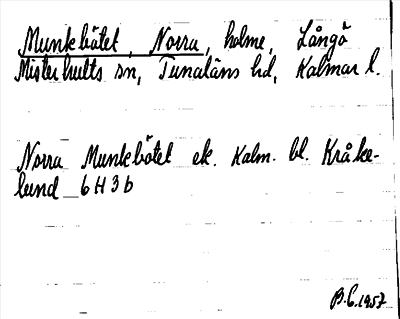 Munkbötet, Norra, holme, Långö
Misterhults sn, Tunaläns hd, Kalmar l.
Norra Munkbötet ek. Kalm. bl. Kråke-
lund 6H3b
B.C.1957